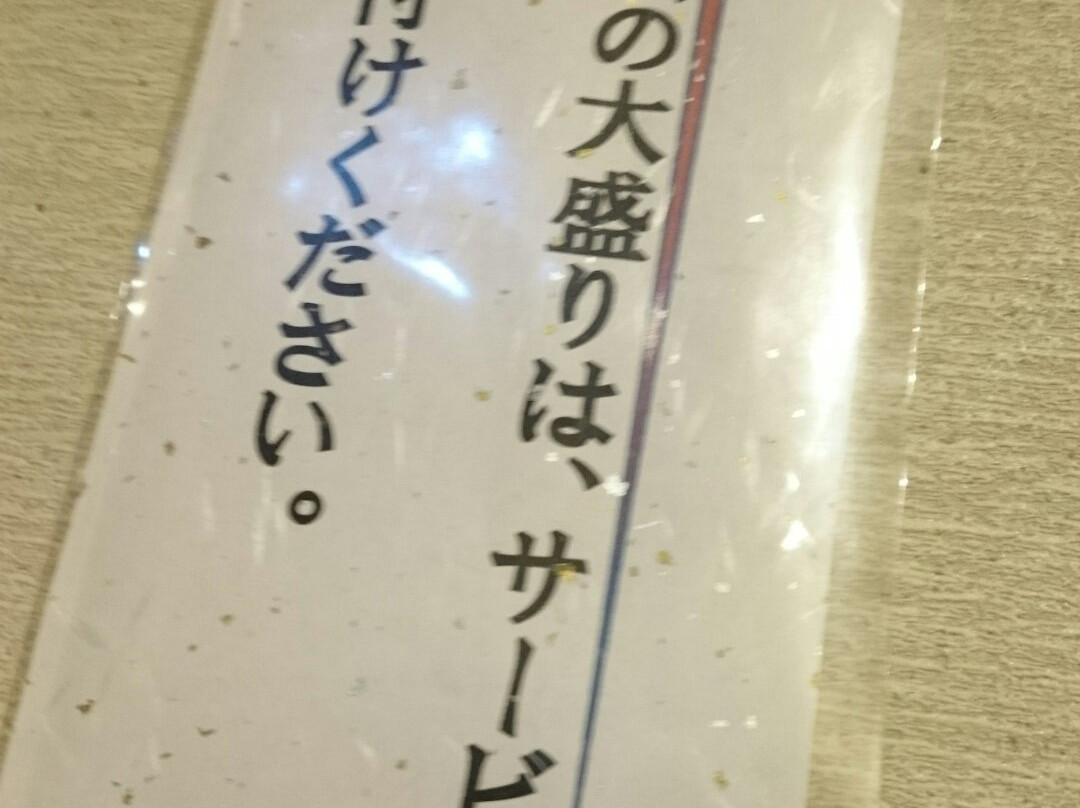 の大盛りは、サービ
付けください。